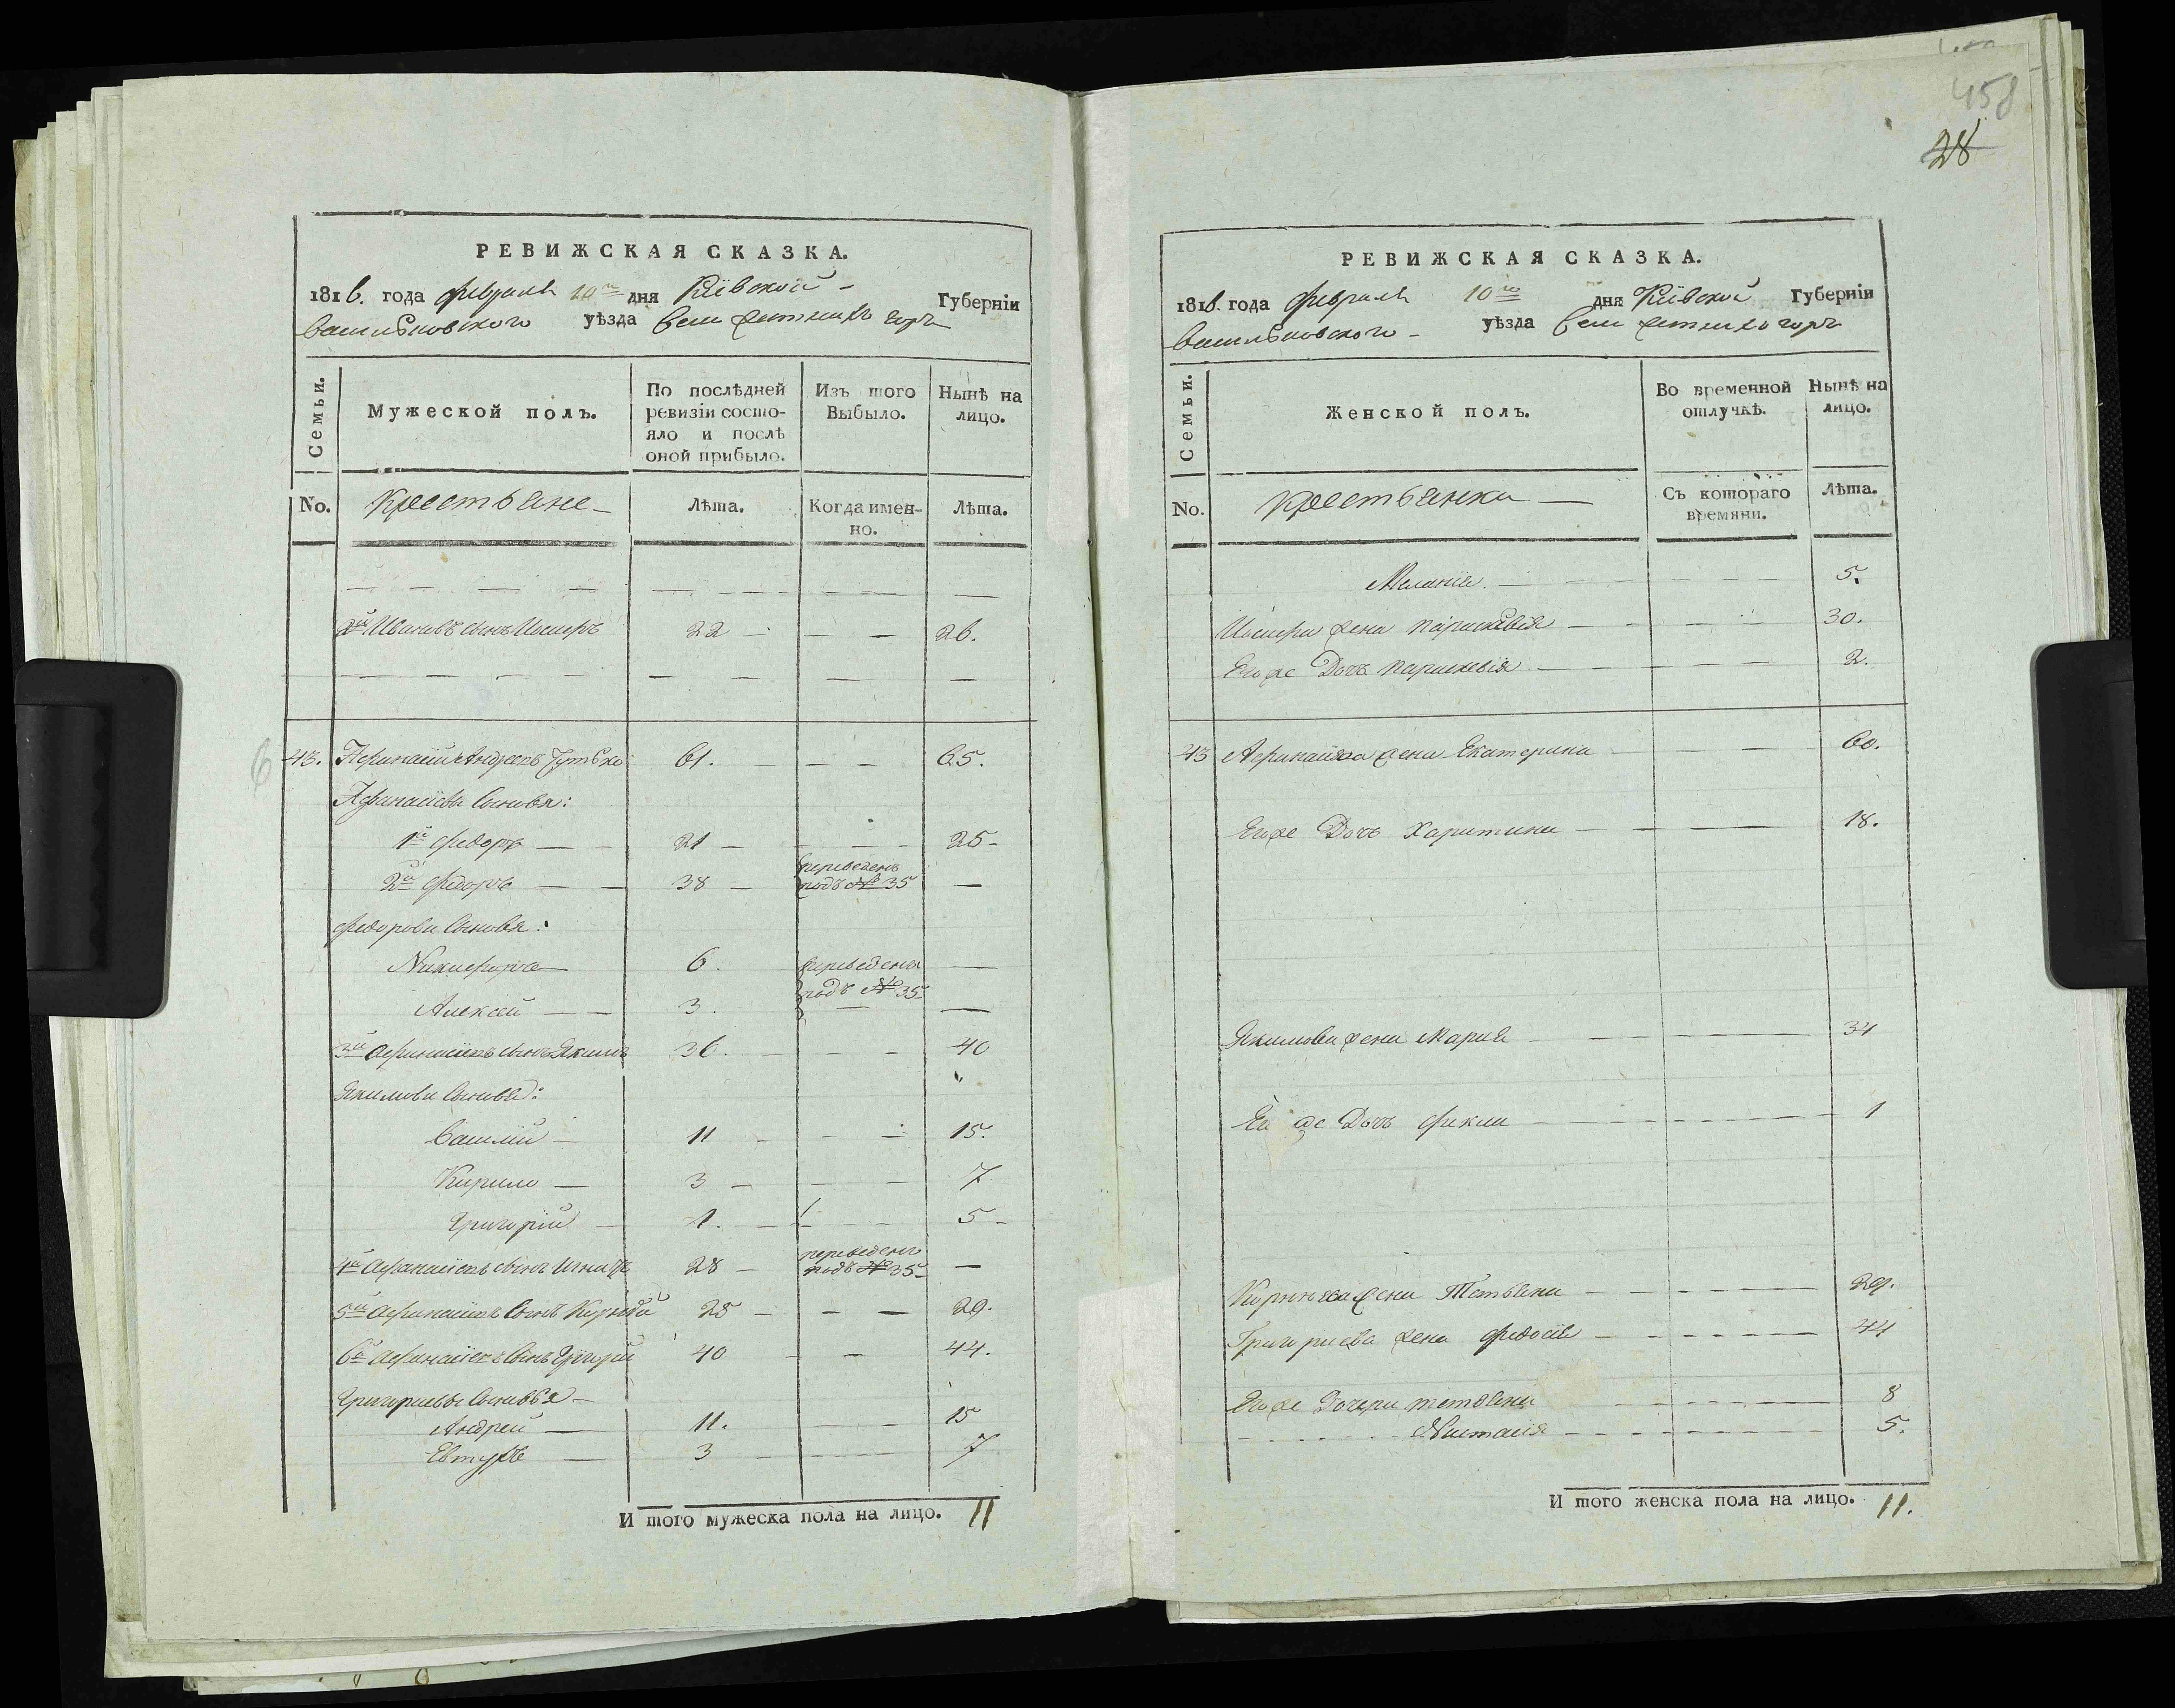 458
28
РЕВИЖСКАЯ СКАЗКА.
1816. года февраля 10го дня Кіевской Губерніи
Васильковского уѣзда Села горъ
Семьи.
Мужеской полъ.
По послѣдней ревизіи состо-
яло и послѣ
оной прибыло.
Изъ того Выбыло.
Нынѣ на лицо.
No. Крестьяне Лѣта. Когда имен-
но. Лѣта.
2й Ивановъ сынъ Іосифъ 22 26.
43. Афанасій Андреевъ 61. 65.
Афанасіевы Сыновья:
1й Федоръ 21 25
2й Федоръ 38 переведенъ подъ № 35
Федоровы Сыновья:
Никифоръ 6. переведены
подъ № 35
Алексей 3.
3й Афанасіевъ сынъ Якимъ 36. 40
Якимовы Сыновья:
Василій 11 15.
Кирило 3 7
Григорій 1. 5
4й Афанасіевъ сынъ Игнатъ 28 переведенъ подъ № 35
5й Афанасіевъ Сынъ Корней 25 29.
6й Афанасіевъ Сынъ Григорій 40 44.
Григориевы Сыновья
Андрей 11. 15
Евтухъ 3 7
И того мужеска пола на лицо. 11
РЕВИЖСКАЯ СКАЗКА.
1816. года февраля 10го дня Кіевской Губерніи
Васильковского уѣзда Села горъ
Семьи.
Женской полъ.
Во временной отлучкѣ.
Нынѣ на лицо.
No. Крестьянки Съ котораго
времяни. Лѣта.
Меланія 5.
Іосифа жена Параскевія 30.
Его же Дочь Параскевія 2.
43 Афанасіева жена Екатерина 60.
Его же Дочь Харитина 18.
Якимова жена Марія 34
Его же Дочь Фекла 1
Корнеева жена Тетьяна 29.
Григориева жена Федосія 44
Его же Дочери Тетьяна 8
Настасія 5.
И того женска пола на лицо. 11.